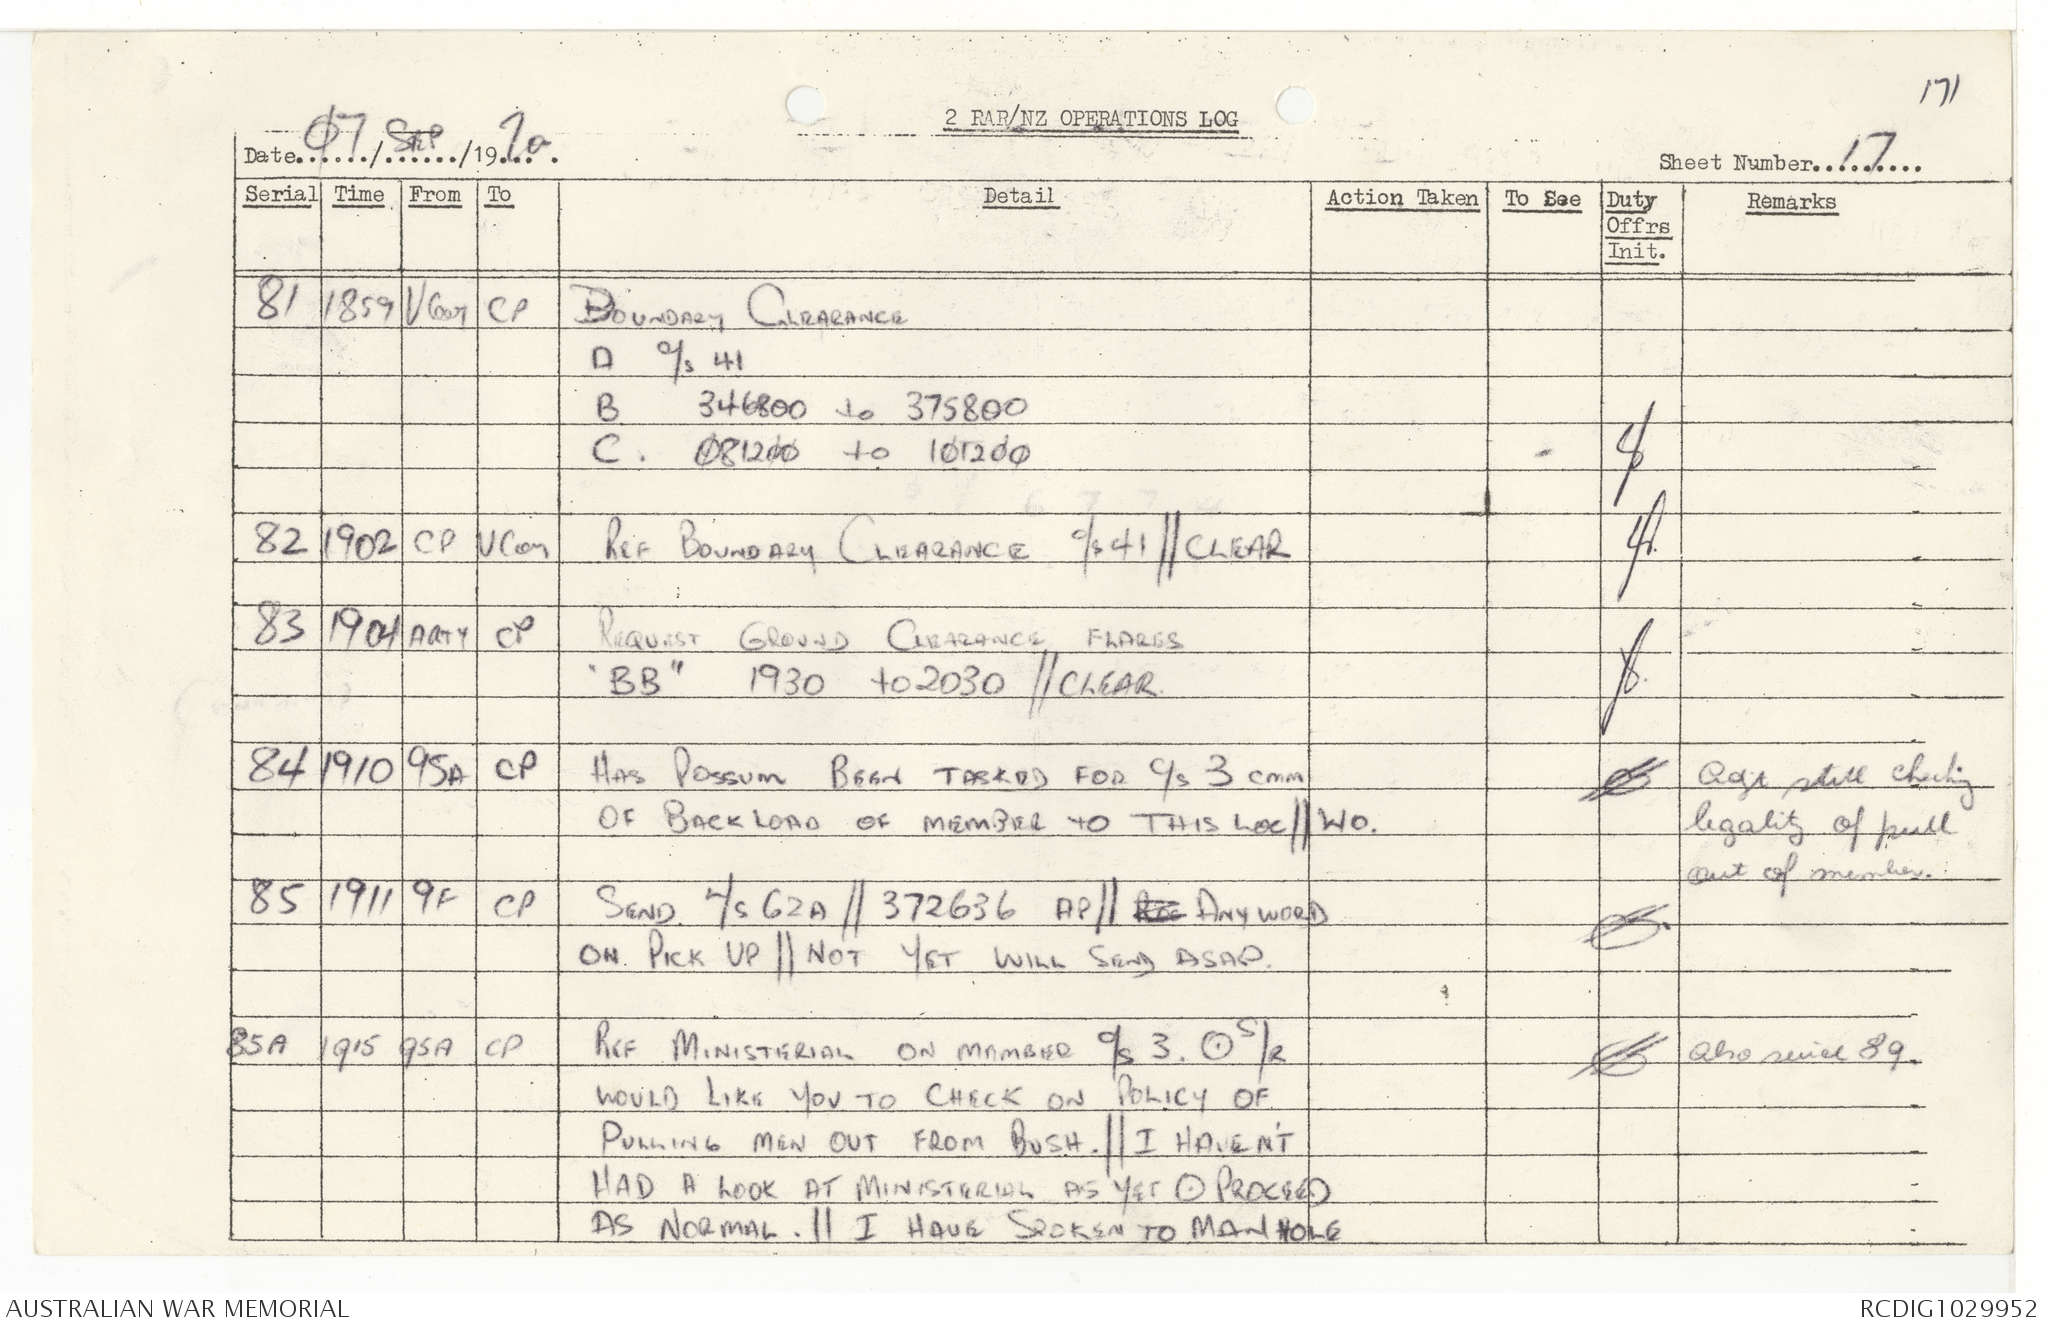 171
2 RAR/NZ OPERATIONS LOG
Date 07 / SEP / 1970
Sheet Number 17
Serial Time From To Detail Action Taken To See Duty Offrs Init. Remarks
81 1859 VCom CP BOUNDARY CLEARANCE
A c/s 41
B 346800 to 375800
C. 081200 to 101200
82 1902 CP VCom REF BOUNDARY CLEARANCE c/s 41 // CLEAR
83 1904 ARTY CP REQUEST GROUND CLEARANCE FLARES
"BB" 1930 to 2030 // CLEAR.
84 1910 95A CP HAS POSSUM BEEN TASKED FOR c/s 3 CMM Adjt still checking
OF BACKLOAD OF MEMBER TO THIS LOC // WO. legality of pull
out of member.
85 1911 9F CP SEND c/s 62A // 372636 AP // ANY WORD
ON PICK UP // NOT YET WILL SEND ASAP.
85A 1915 95A CP REF MINISTERIAL ON MAMBER c/s 3. ⊙ S/R Also serial 89.
WOULD LIKE YOU TO CHECK ON POLICY OF
PULLING MEN OUT FROM BUSH. // I HAVEN'T
HAD A LOOK AT MINISTERIAL AS YET ⊙ PROCEED
AS NORMAL. // I HAVE SPOKEN TO MANHOLE
AUSTRALIAN WAR MEMORIAL
RCDIG1029952